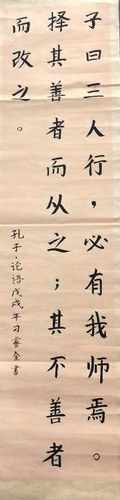 子曰三人行，必有我师焉。
择其善者而从之；其不善者
而改之。
孔子·论语戊戌年刁蓉全书